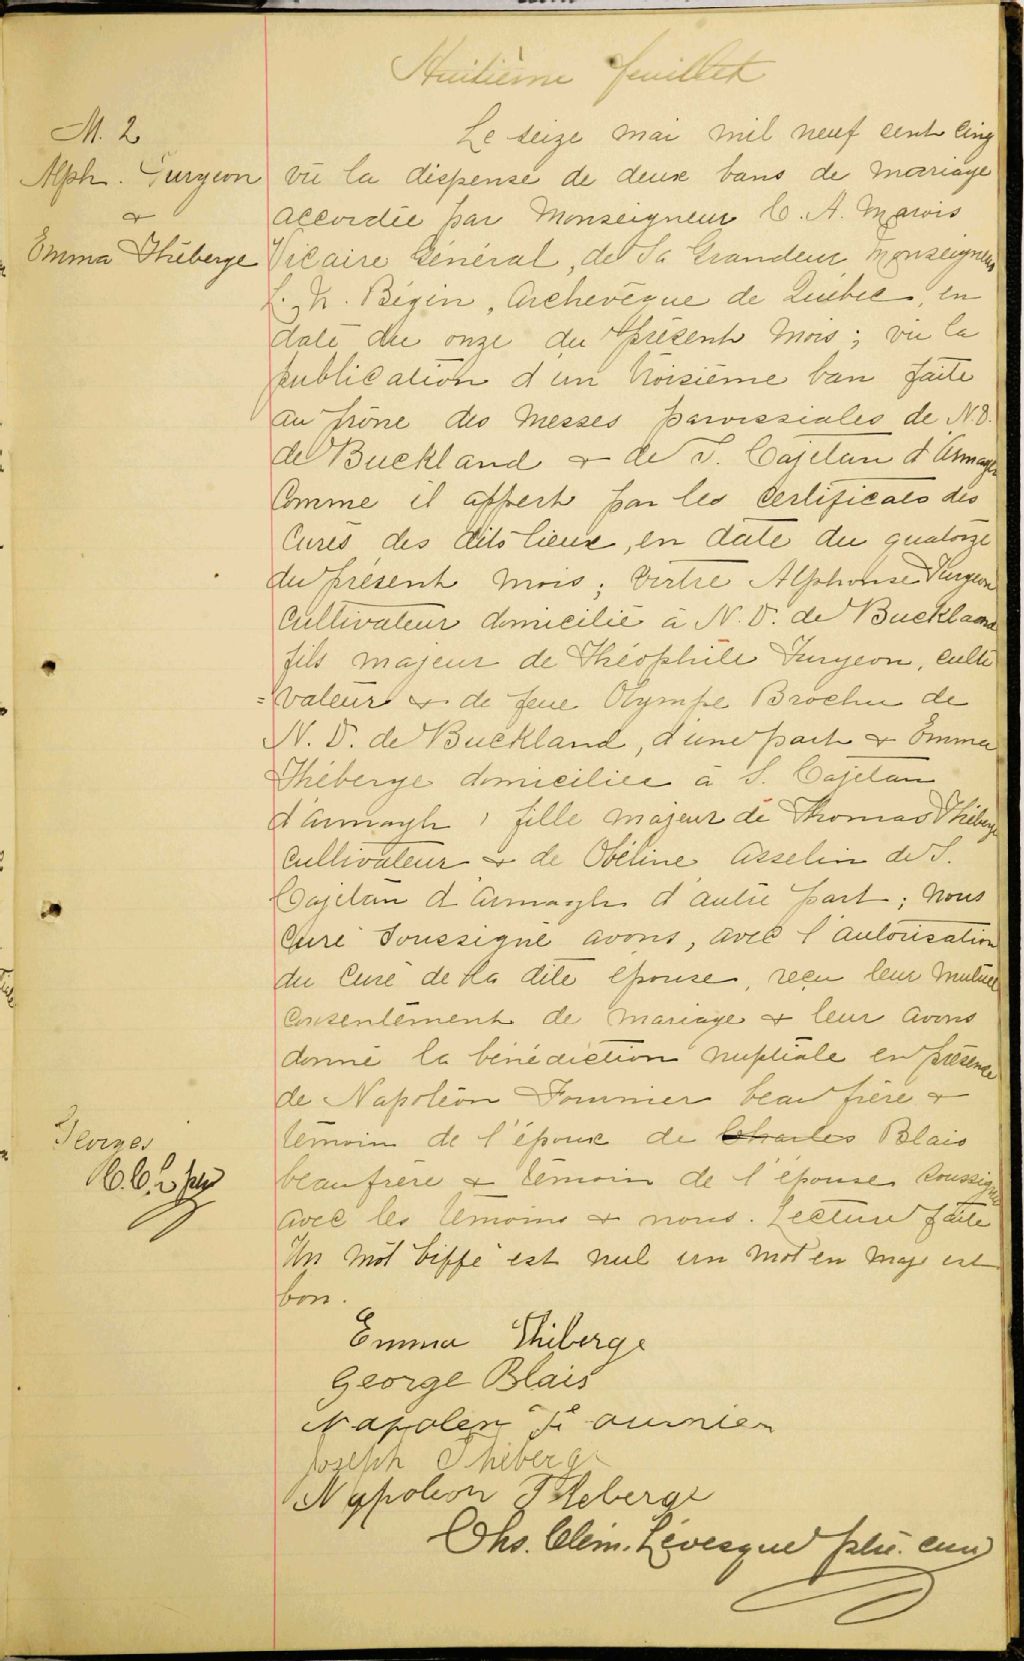 Huitième feuillet
M. 2
Alph. Turgeon
&
Emma Théberge
Le seize mai mil neuf cent cinq
vu la dispense de deux bans de mariage
accordée par Monseigneur C. A. Marois
Vicaire Général, de Sa Grandeur Monseigneur
L. N. Bégin, Archevêque de Québec, en
date du onze du présent mois; vu la
publication d'un troisième ban faite
au prône des messes paroissiales de N.D.
de Buckland & de S. Cajetan d'Armagh
comme il appert par les certificats des
curés des dits lieux, en date du quatorze
du présent mois; entre Alphonse Turgeon
cultivateur domicilié à N. D. de Buckland
fils majeur de Théophile Turgeon, culti
=vateur & de feue Olympe Brochu de
N. D. de Buckland, d'une part & Emma
Théberge domiciliée à S. Cajetan
d'Armagh, fille majeur de Thomas Théberge
cultivateur & de Obéline Asselin de S.
Cajetan d'Armagh d'autre part; nous
curé soussigné avons, avec l'autorisation
du curé de la dite épouse, reçu leur mutuel
consentement de mariage & leur avons
donné la bénédiction nuptiale en présence
de Napoléon Fournier beau frère &
témoin de l'époux de Charles Blais
beau frère & témoin de l'épouse soussignés
avec les témoins & nous. Lecture faite
Un mot biffé est nul un mot en marge est
bon.
Georges
C.C.L ptre
Emma Théberge
George Blais
Napolen Fournier
Joseph Théberge
Napoleon Théberge
Chs. Clém. Lévesque ptre. curé